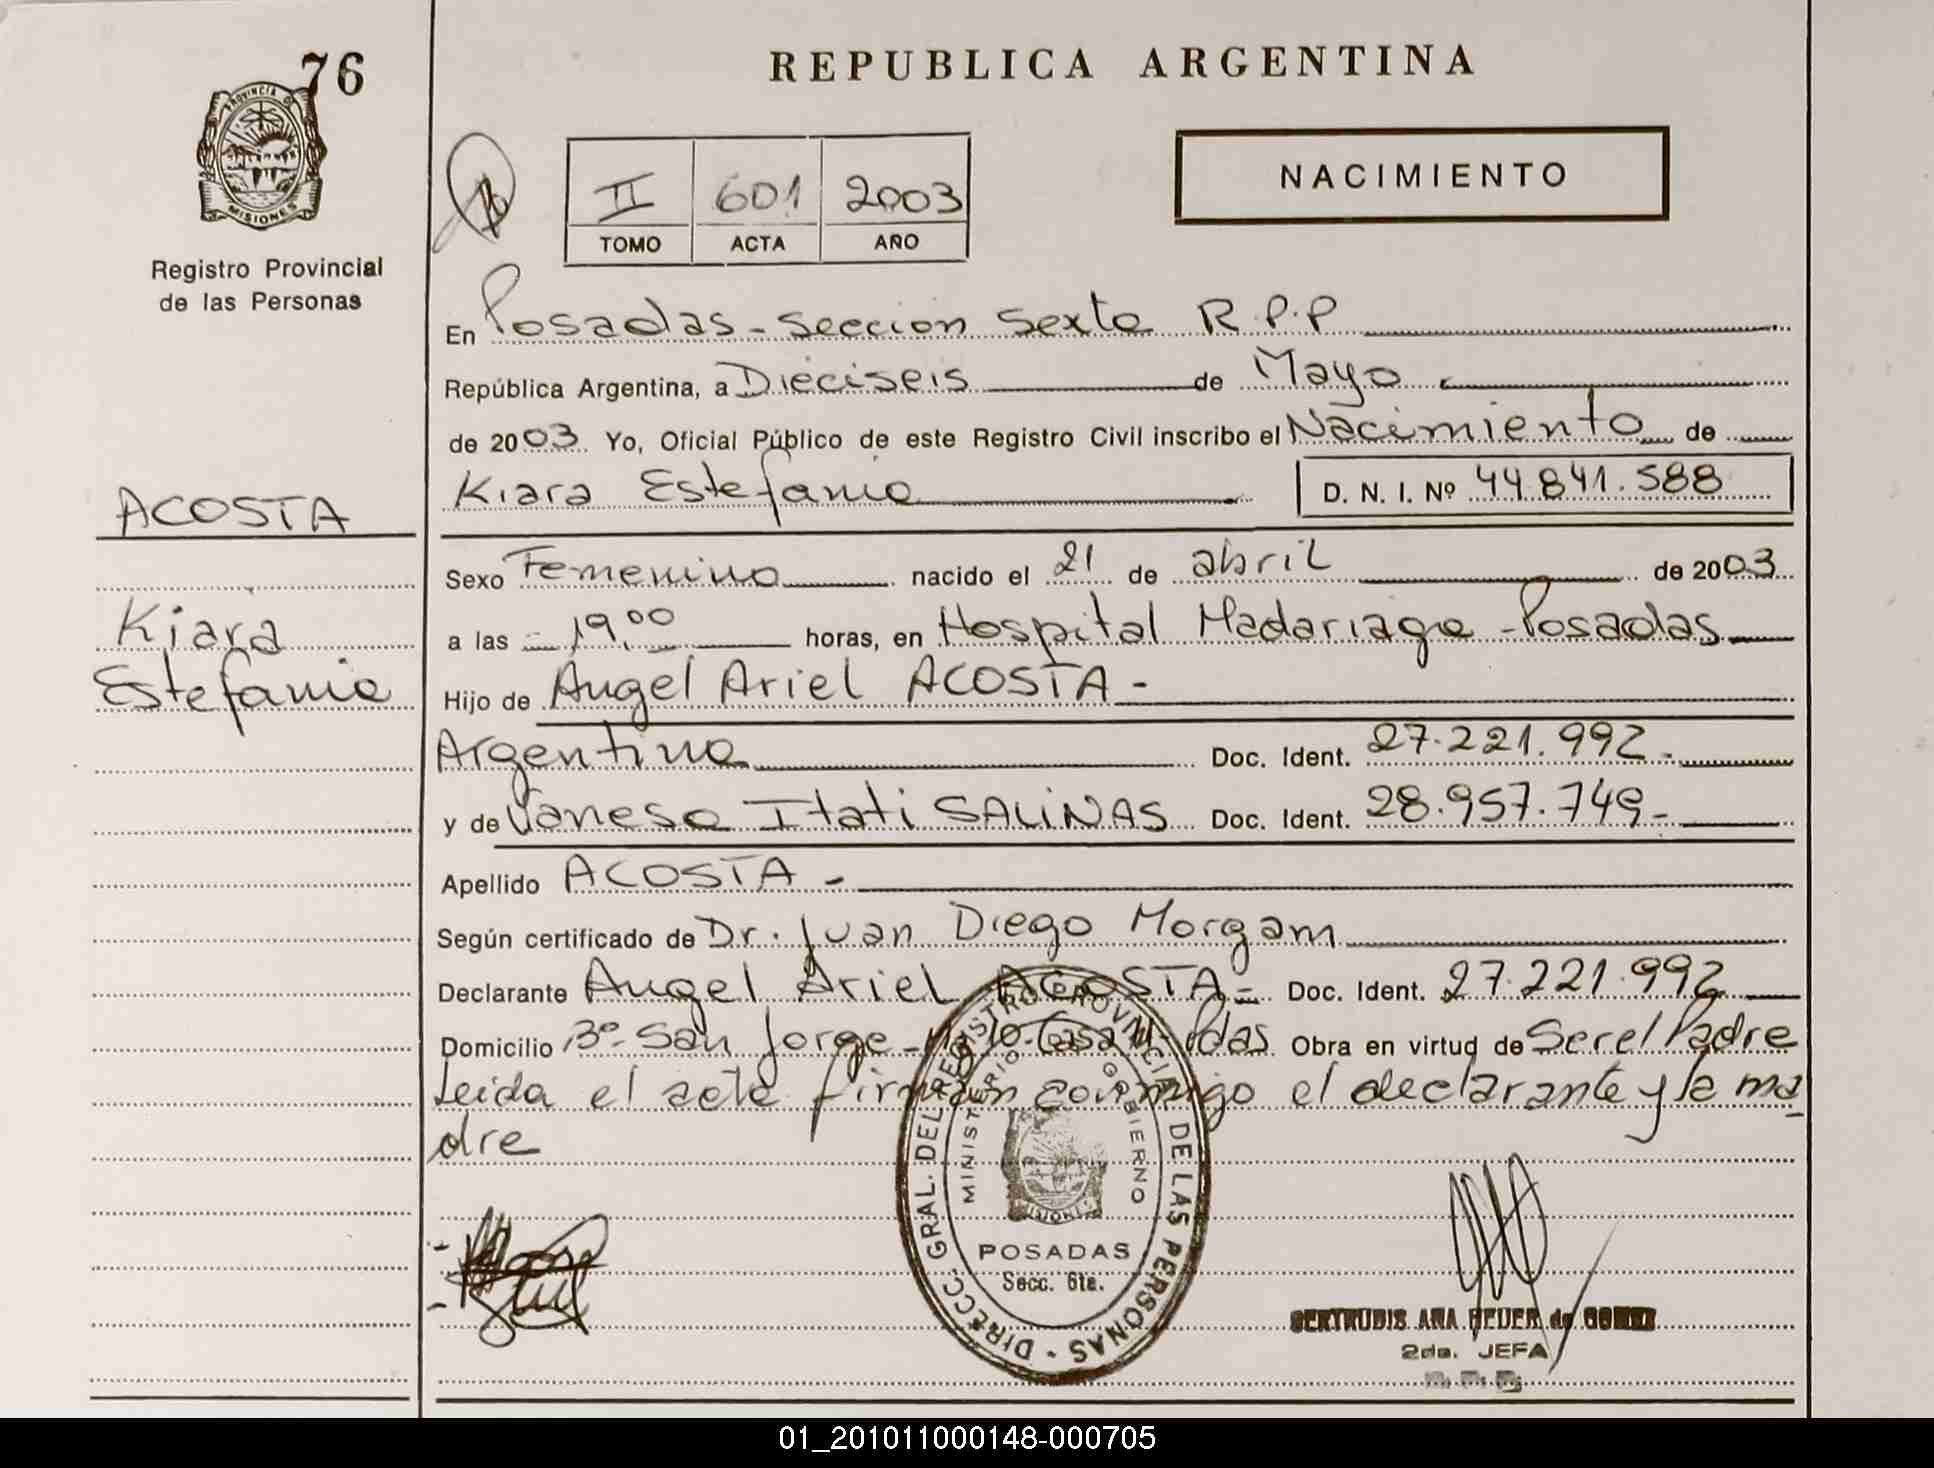 76
REPUBLICA ARGENTINA
PROVINCIA DE
MISIONES
Registro Provincial
de las Personas
II 601 2003
TOMO ACTA AÑO
NACIMIENTO
En Posadas - Seccion Sexta R.P.P
República Argentina, a Dieciseis de Mayo
de 2003. Yo, Oficial Público de este Registro Civil inscribo el Nacimiento de
Kiara Estefania D. N. I. Nº 44.841.588
ACOSTA
Kiara
Estefania
Sexo Femenino nacido el 21 de abril de 2003
a las 19,00 horas, en Hospital Madariaga - Posadas
Hijo de Angel Ariel ACOSTA -
Argentina Doc. Ident. 27.221.992 -
y de Vanesa Itati SALINAS Doc. Ident. 28.957.749 -
Apellido ACOSTA -
Según certificado de Dr. Juan Diego Morgam
Declarante Angel Ariel ACOSTA - Doc. Ident. 27.221.992
Domicilio Bº San Jorge - 10 - Casa Pdas. Obra en virtud de Ser el Padre
Leida el acta firman conmigo el declarante y la ma
dre
DIRECC. GRAL. DEL REGISTRO PROVINCIAL DE LAS PERSONAS
MINISTERIO GOBIERNO
POSADAS
Secc. 6ta.
GERTRUDIS ANA de GOMEZ
2da. JEFA
01_201011000148-000705